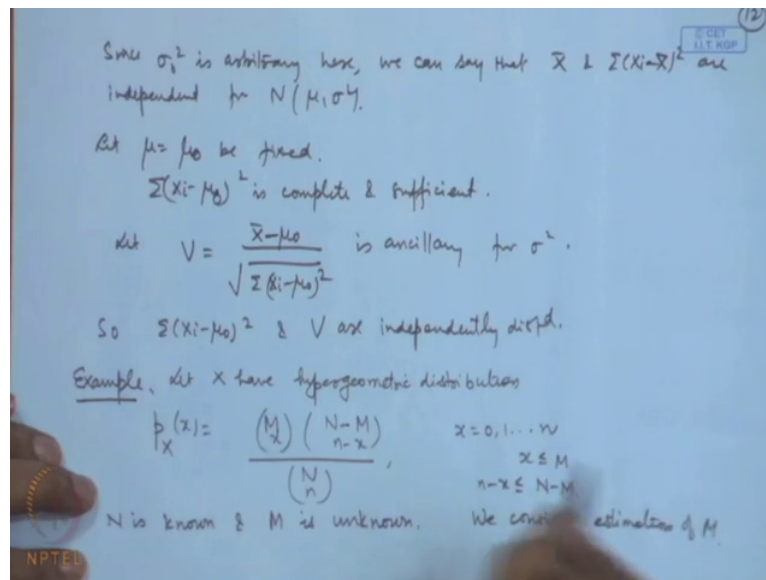 12
© CET
I.I.T. KGP
Since σ₀² is arbitrary here, we can say that X̄ & Σ(Xi-X̄)² are
independent for N(μ, σ²).
Let μ = μ₀ be fixed.
Σ(Xi-μ₀)² is complete & sufficient.
Let V = (X̄-μ₀) / √Σ(Xi-μ₀)² is ancillary for σ².
So Σ(Xi-μ₀)² & V are independently distd.
Example. Let X have hypergeometric distribution
p_X(x) = (M x) (N-M n-x) / (N n), x = 0, 1... n
x ≤ M
n-x ≤ N-M
N is known & M is unknown. We estimation of M.
NPTEL